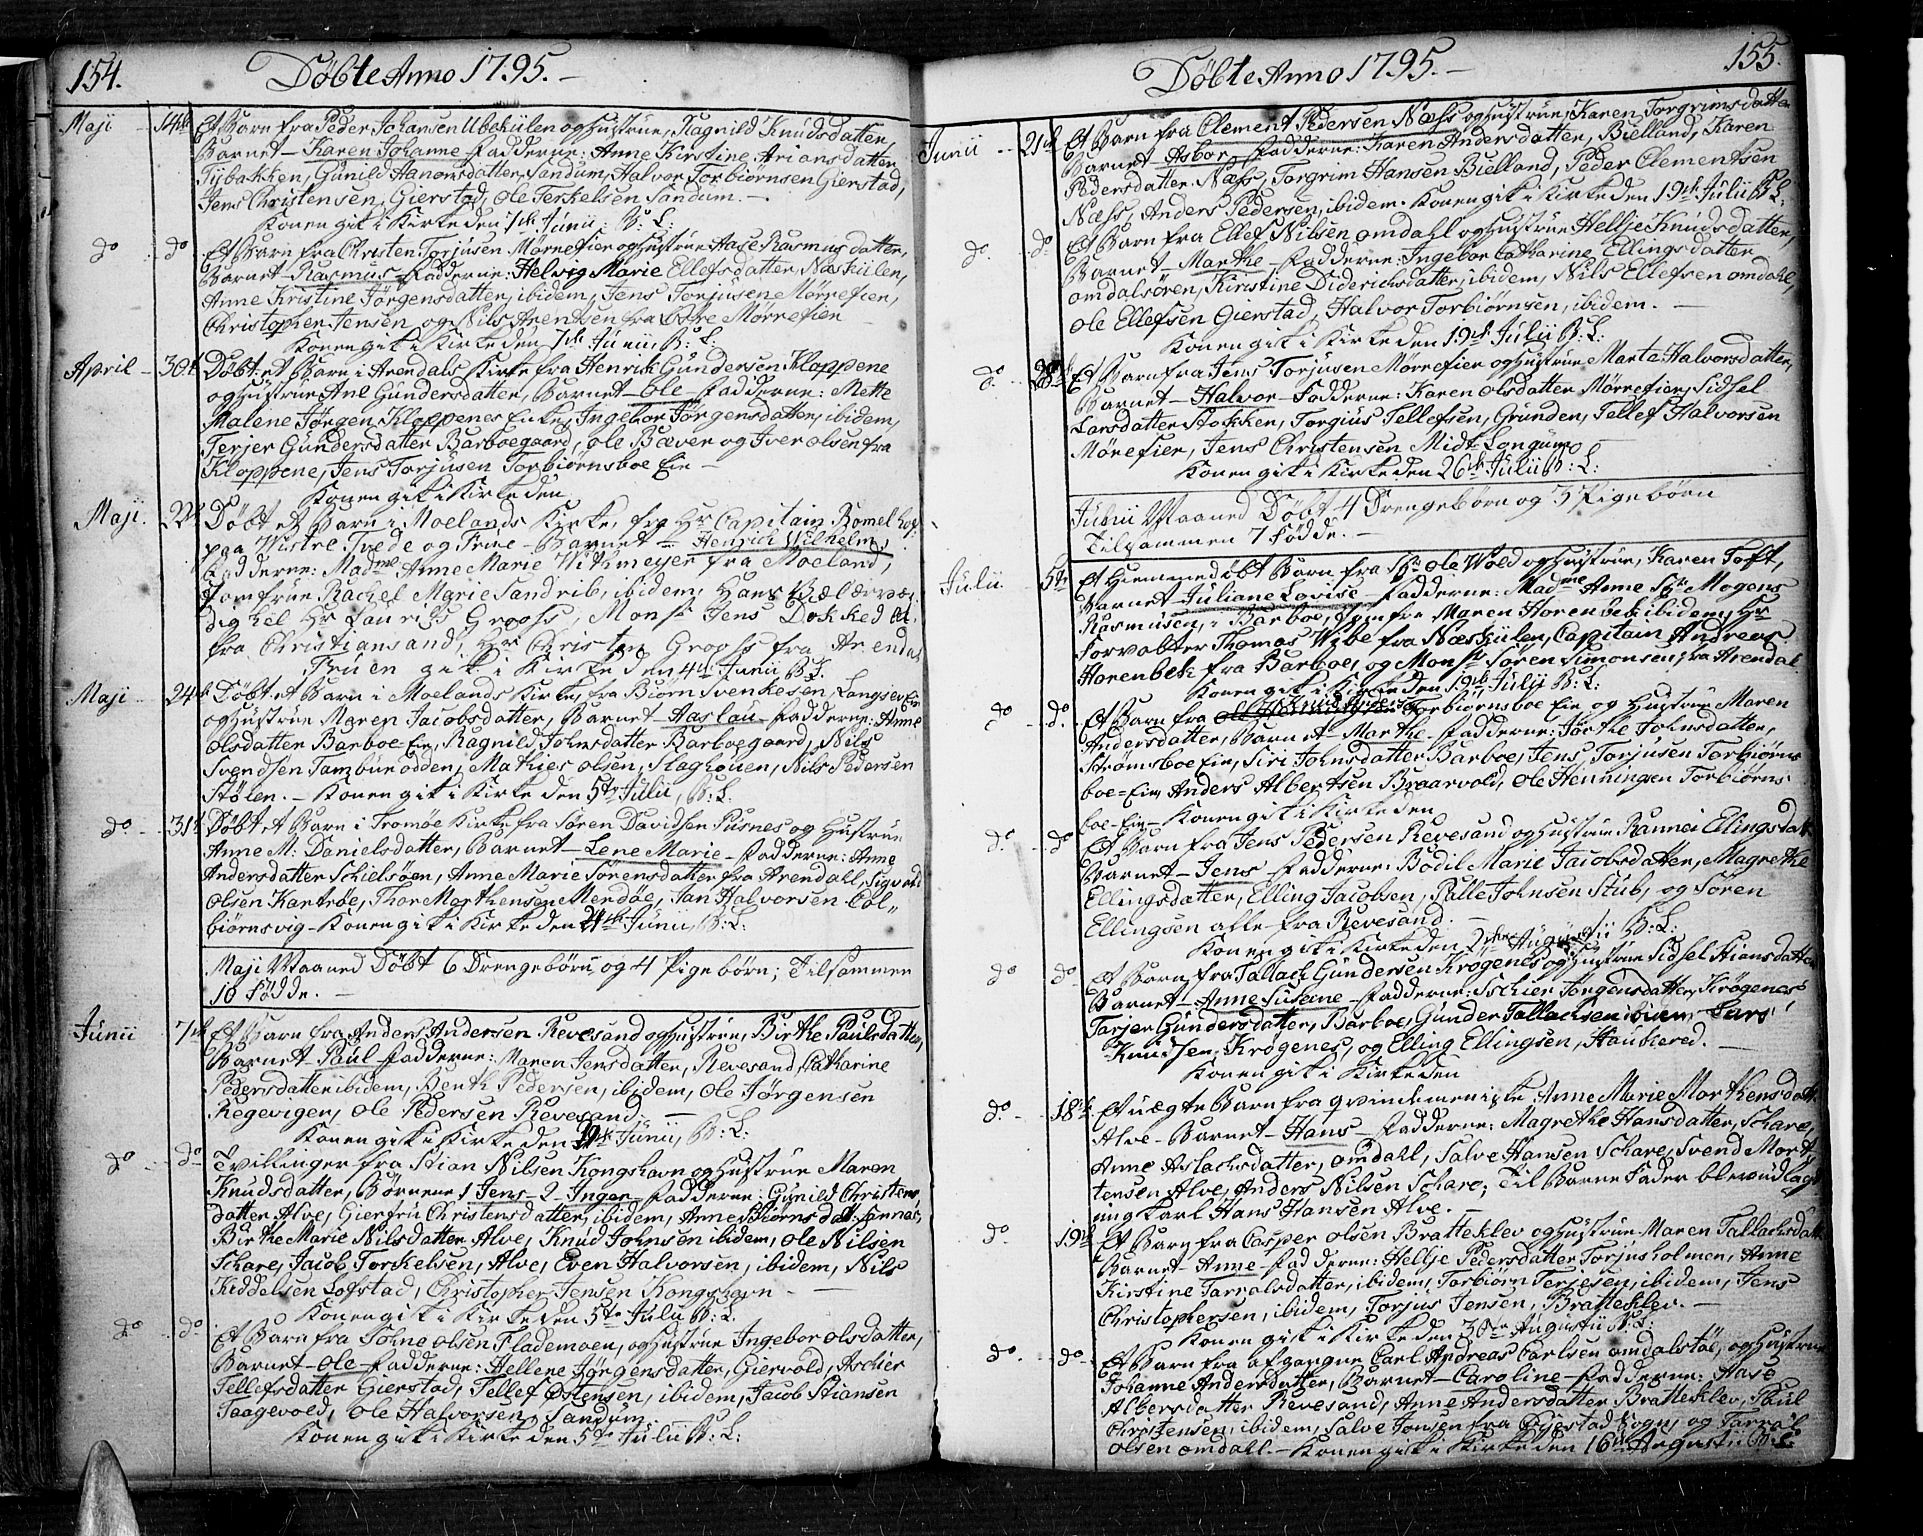 154.
Döbte Anno 1795.-
Maji 14de Et Barn fra Peder Johansen Ubekülen og Hustrue, Ragnild Knüdsdatter,
Barnet - Karen Johanne - Fadderne: Anne Kirstine Ariansdatter,
Tybakken, Günild Hanonsdatter, Sandum, Halvor Torbiörnsen Gierstad,
Jens Christensen, Gierstad, Ole Terkelsen Sandum. -
Konen gik i Kirke den 7de Junii. B: L:
do do Et Barn fra Christen Torjüsen Mörrefier og Hustrue Aase Rasmusdatter,
Barnet - Rasmus - Fadderne: Helvig Marie Ellefsdatter, Næskülen,
Anne Kristine Jörgensdatter, ibidem, Jens Torjüsen Mörrefier,
Christopher Jensen og Nils Arentsen fra Östre Mörrefier
Konen gik i Kirke den 7de Junii, B: L:
April - 30te Döbt et Barn i Arendals Kirke fra Henrik Gündersen Kloppene
og Hustrue Ane Gündersdatter, Barnet - Ole - Fadderne: Mette
Malene Jörgen Kloppenes Enke, Ingebor Jörgensdatter, ibidem,
Terjer Gündersdatter Barboegaard, Ole Bæver og Iver Olsen fra
Kloppene, Jens Torjüsen Torbiörnsboe Eie -
Konen gik i Kirke den
Maji. 22de Döbt et Barn i Moelands Kirke, fra Hr Capitain Romelhof
paa Vistre Tvede og Frue - Barnet - Henrich Wilhelm,
Fadderne: Madme Anne Marie Witkmeyer fra Moeland,
Jomfrue Rachel Marie Sandrib, ibidem, Hans
Hr Laurids Grooss, Monsr Jens Dokked
fra Christiansand, Hr Christen Grooss fra Arendal
Fruen gik i Kirke den 4de Junii B: L:
Maji 24de Döbt et Barn i Moelands Kirke, fra Biörn Svenkesen, Langsev Eie
og Hustrue Maren Jacobsdatter, Barnet - Aaslau - Fadderne: Anne
Olsdatter Barboe-Eie, Ragnild Johnsdatter Barboegaard, Nils
Svendsen Tambürodden, Mathies Olsen, Flaghouen, Nils Pedersen
Stölen. - Konen gik i Kirke den 5te Julii, B: L:
do - 31te Döbt et Barn i Tromöe Kirke fra Sören Davidsen Pusnes og Hustrue
Anne M: Danielsdatter, Barnet - Lene Marie - Fadderne: Anne
Andersdatter Schielsöen, Anne Marie Sörensdatter fra Arendall, Sigvald
Olsen Kartröe, Thor Morthensen Merdöe, Jan Halvorsen Col„
biörnsvig - Konen gik i Kirke den 24de Junii, B: L:
Maji Maaned Döbt 6 Drengebörn og 4 Pigebörn; Tilsammen
10 Födde. -
Junii - 7de Et Barn fra Anders Andersen Revesand og Hustrue, Birthe Paulsdatter,
Barnet - Paul - Fadderne: Maren Jensdatter, Revesand, Catharine
Pedersdatter ibidem, Benth Pedersen, ibidem, Ole Jörgensen
Regevigen, Ole Pedersen Revesand. -
Konen gik i Kirke den Junii, B: L:
do do Tvillinger fra Stian Nilsen Kongshavn og Hustrue Maren
Knudsdatter, Börnene 1 Jens 2 Inger - Fadderne: Günild Christens„
datter Alve, Gierfrü Christensdatter, ibidem, Anne Biörnsdatt: Sannes,
Birthe Marie Nilsdatter Alve, Knüd Johnsen ibidem, Ole Nilsen
Schare, Jacob Torkelsen, Alve, Even Halvorsen, ibidem, Nils
Kiddelsen Lofstad, Christopher Jensen Kongshavn -
Konen gik i Kirke den 5te Julii B: L:
do do Et Barn fra Tolne Olsen Flademoen, og Hustrue Ingebor Olsdatter,
Barnet - Ole - Fadderne: Hellene Jörgensdatter, Giervold, Aschier
Tellefsdatter Gierstad, Tellef Östensen, ibidem, Jacob Stiansen
Saagevold, Ole Halvorsen, Sandum.
Konen gik i Kirke den 5te Julii B: L:
155.
Döbte Anno 1795.-
Junii - 21de Et Barn fra Clement Pedersen Næss og Hustrue, Karen Torgrimsdatter
Barnet - Asbor - Fadderne: Karen Andersdatter, Bielland, Karen
Pedersdatter Næss, Torgrim Hansen Bielland, Peder Clementsen
Næss, Anders Pedersen, ibidem. Konen gik i Kirke den 19de Julii B: L:
do. do Et Barn fra Ellef Nilsen Omdahl og Hustrue Hellje Knüdsdatter,
Barnet - Marthe - Fadderne: Ingebor Catharine Ellingsdatter
Omdalsören, Kirstine Diderichsdatter, ibidem, Nils Ellefsen Omdahl,
Ole Ellefsen Gierstad, Halvor Torbiörnsen, ibidem. -
Konen gik i Kirke den 19de Julii B: L:
do. 28de Et Barn fra Jens Torjüsen Mörrefier og Hustrue Marte Halvorsdatter,
Barnet - Halvor - Fadderne: Karen Olsdatter Mörrefier, Sidsel
Larsdatter Stokken, Torgiüs Tellefsen, Gründen, Tellef Halvorsen
Mörefier, Jens Christensen Midt Longum -
Konen gik i Kirke den 26de Julii B: L:
Junii Maaned Döbt 4 Drengebörn og 3 Pigebörn
Tilsammen 7 Födde. -
Julii 5te Et Hiemmedöbt Barn fra Sr Ole Wold og Hustrue, Karen Toft,
Barnet - Juliane Lovise - Fadderne: Madme Anne Sr Mogens
Rasmusen, i Barboe, Jomfrue Maren Horenbek ibidem, Hr
Forvalter Thomas Wibe fra Næskülen, Capitain Andreas
Horenbek fra Barboe, og Monsr Sören Simonsen, fra Arendal
Konen gik i Kirke den 19de Julii B: L:
do do. Et Barn fra Torbiörnsboe Eie og Hustrue Maren
Andersdatter, Barnet - Marthe - Fadderne: Dorthe Johnsdatter,
Strömsboe Eie, Siri Johnsdatter Barboe, Jens Torjusen Torbiörns
boe-Eie, Anders Albertsen Braarvold, Ole Henningen Torbiörns
boe-Eie - Konen gik i Kirke den
do. do Et Barn fra Jens Pedersen Revesand og Hustrue Rannei Ellingsdatt
Barnet - Jens - Fadderne: Bodil Marie Jacobsdatter, Magrethe
Ellingsdatter, Elling Jacobsen, Palle Johnsen Stüb, og Sören
Ellingsen alle fra Revesand. -
Konen gik i Kirke den 2den Augustii B: L:
do do Et Barn fra Tallach Gündersen Krögenes og Hustrue Sidsel Stiansdatter
Barnet - Anne Susane - Fadderne: Ischier Jörgensdatter, Krögenes
Tarjer Gündersdatter, Barboe, Günder Tallachsen ibidem, Lars
Knudsen, Krögenes, og Elling Ellingsen, Stauskered. -
Konen gik i Kirke den
do. - 18de Et uægte Barn fra Qvindemenniske Anne Marie Morthensdatt
Alve - Barnet - Hans - Fadderne: Magrethe Hansdatter, Schare,
Anne Aslachsdatter, Omdahl, Salve Hansen Schare, Svend Mort,
tensen Alve, Anders Nilsen Schare; Til Barne Fader blev udlagt
ung Karl Hans Hansen Alve. -
do. 19de Et Barn fra Casper Olsen Bratteklev og Hustrue Maren Tallachsdatt
Barnet - Anne - Fadderne: Hellje Pedersdatter Torjüsholmen, Anne
Kirstine Tarralsdatter, ibidem, Torbiörn Terjesen, ibidem, Jens
Christophersen, ibidem, Torjüs Jensen, Bratteklev. -
Konen gik i Kirke den 30te Augustii B: L:
do. do - Et Barn fra afgangne Carl Andreas Carlsen Omdalstöl, og Hustrue
Johanne Andersdatter, Barnet - Caroline - Fadderne: Aase
Albersdatter Revesand, Anne Andersdatter Bratteklev, Paul
Christensen, ibidem, Salve Jonsen fra Öjestad Sogn, og Tarral
Olsen Omdahl. - Konen gik i Kirke den 16de Augustii B: L: